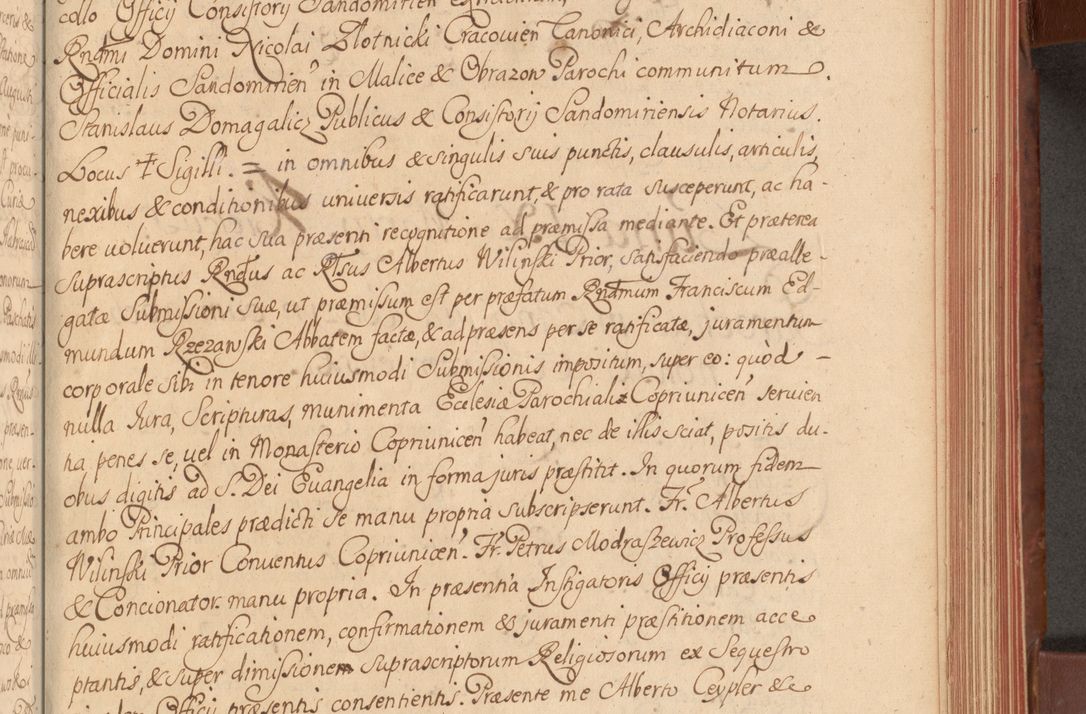 collo Officij Consistory Sandomirien
Rndmi Domini Nicolai Zlotnicki Cracovien Canonici, Archidiaconi &
Officialis Sandomirien in Malice & Obrazow Parochi communitum.
Stanislaus Domagalicz Publicus & Consistorij Sandomiriensis Notarius.
Locus ‡ Sigilli. = in omnibus & singulis suis punctis, clausulis, articulis,
nexibus & conditionibus universis ratificarunt, & pro rata susceperunt, ac ha-
bere voluerunt, hac sua præsenti recognitione ad præmissa mediante. Et præterea
suprascriptus Rndus ac Rlsus Albertus Wilinski Prior, satisfaciendo præalle-
gatæ Submissioni suæ, ut præmissum est per præfatum Rndmum Franciscum Ed-
mundum Rzezawski Abbatem factæ, & ad præsens per se ratificatæ, juramentum
corporale sibi in tenore huiusmodi Submissionis impositum, super eo: quòd -
nulla Iura, Scripturas, munimenta Ecclesiæ Parochialis Copriunicen servien
tia penes se, vel in Monasterio Copriunicen habeat, nec de illis sciat, positis du-
obus digitis ad S. Dei Euangelia in forma juris præstitit. In quorum fidem
ambo Principales prædicti se manu propria subscripserunt. Fr. Albertus
Wilinski Prior Conventus Copriunicen. Fr. Petrus Modraszewicz Professus
& Concionator manu propria. In præsentia Instigatoris Officij præsentis
huiusmodi ratificationem, confirmationem & juramenti præstitionem acce
ptantis, & super dimissionem suprascriptorum Religiosorum ex Sequestro
Officij præsentis consentientis. Præsente me Alberto Ceypler &c